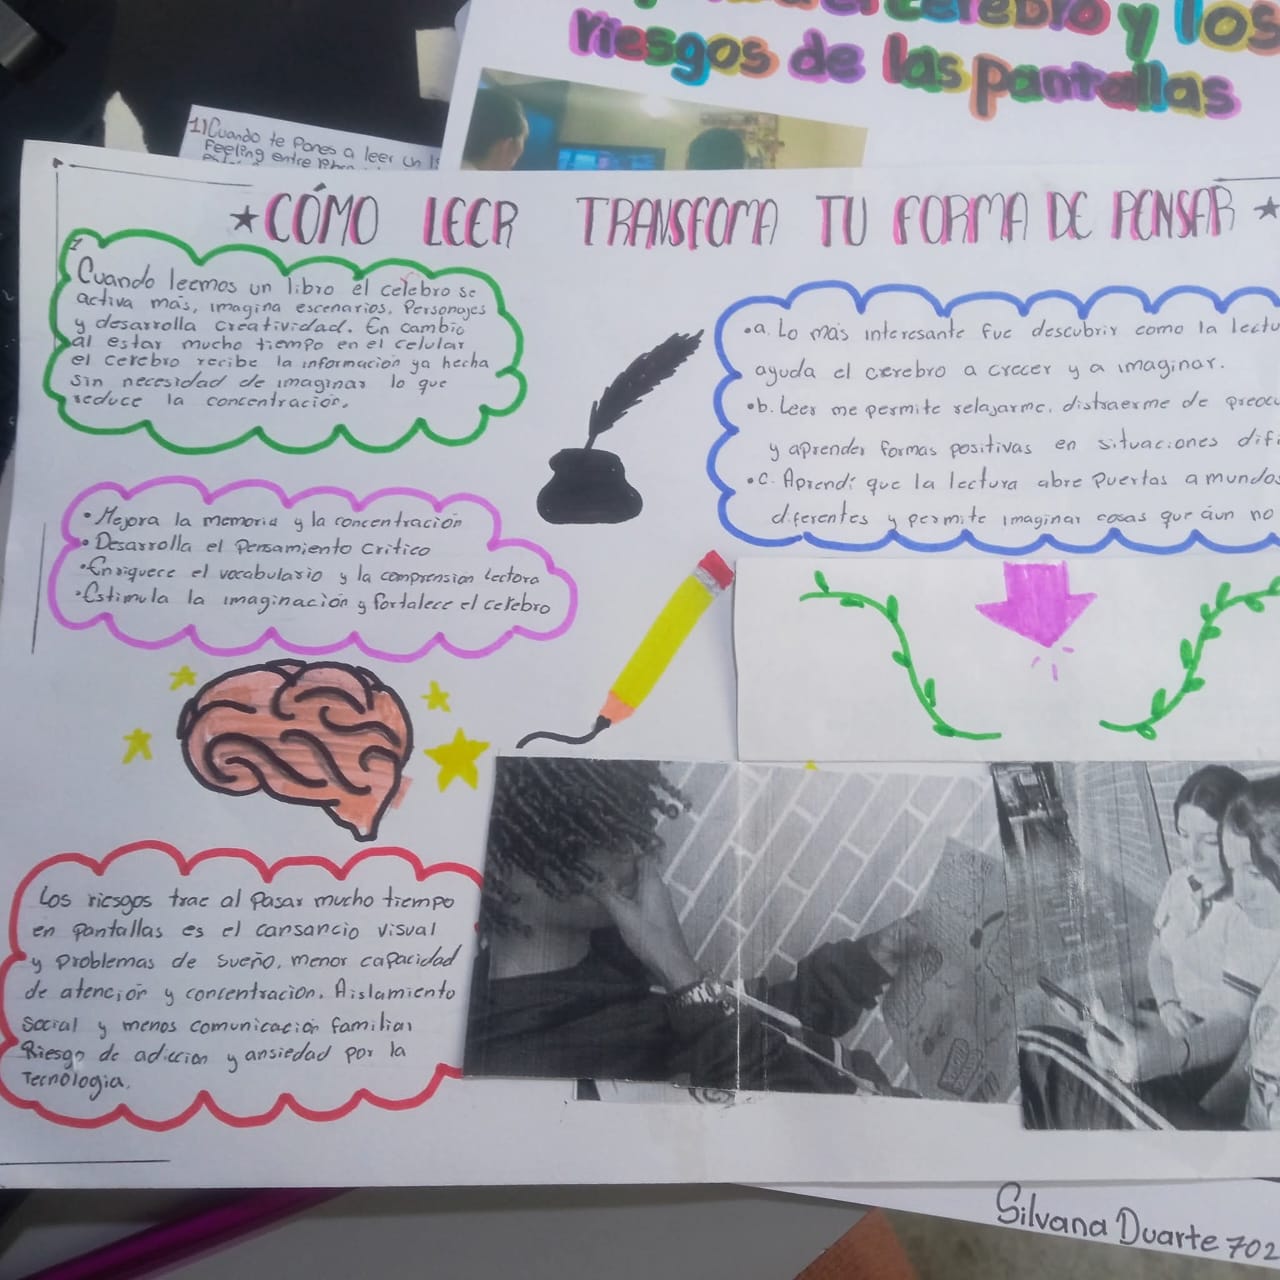 cerebro y los
riesgos de las pantallas
1) Cuando te pones a leer un
Feeling entre
★CÓMO LEER TRANSFOMA TU FORMA DE PENSAR★
1
Cuando leemos un libro el celebro se
activa más, imagina escenarios, Personajes
y desarrolla creatividad. En cambio
al estar mucho tiempo en el celular
el cerebro recibe la información ya hecha
sin necesidad de imaginar lo que
reduce la concentración.
•a. Lo más interesante fue descubrir como la lectu
ayuda el cerebro a crecer y a imaginar.
•b. Leer me permite relajarme, distraerme de preocu
y aprender formas positivas en situaciones difi
•c. Aprendí que la lectura abre puertas a mundos
diferentes y permite imaginar cosas que áun no
• Mejora la memoria y la concentración
• Desarrolla el Pensamiento Critico
•Enriquece el vocabulario y la comprensión lectora
•Estimula la imaginación y fortalece el cerebro
Los riesgos trae al Pasar mucho tiempo
en pantallas es el cansancio visual
y problemas de sueño, menor capacidad
de atención y concentración. Aislamiento
social y menos comunicación familiar
Riesgo de adiccion y ansiedad por la
Tecnologia.
Silvana Duarte 702